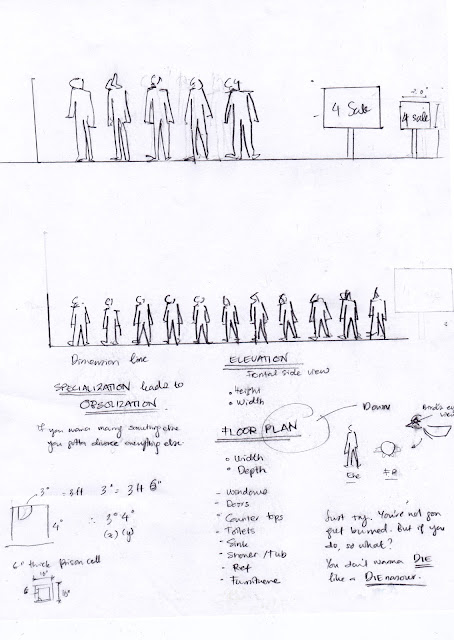 4 Sale
2'0"
4 sale
Dimension line
SPECIALIZATION leads to
OBSOLIZATION.
If you wanna marry something else
you gotta divorce everything else.
3° = 3ft 3° = 3ft 6"
4°
∴ 3° 4°
(x) (y)
6" thick prison cell
10"
6
10"
ELEVATION
Frontal side view
• Height
• Width
FLOOR PLAN
• Width
• Depth
- Windows
- Doors
- Counter tops
- Toilets
- Sink
- Shower/tub
- Ref
- Furniture
Down
Bird's eye
view
Ele
F.P.
Just try. You're not gon
get burned. But if you
do, so what?
You don't wanna DIE
like a DIEnasour.